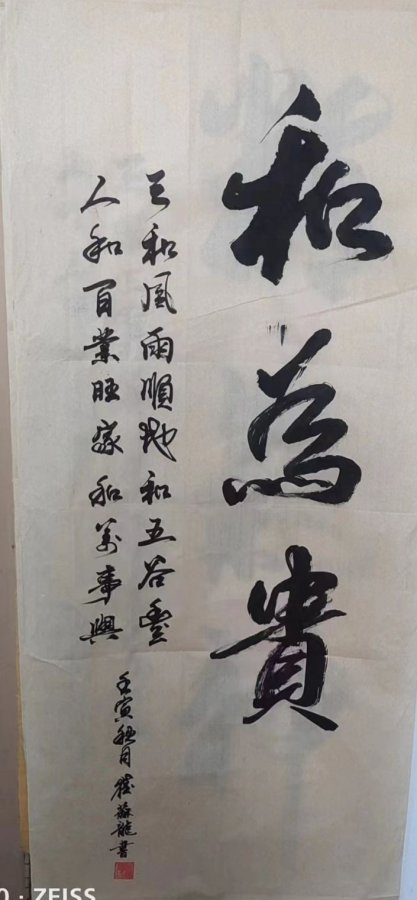 和為貴
天和風雨順地和五谷豐
人和百業旺家和萬事興
壬寅秋月 龍書
ZEISS